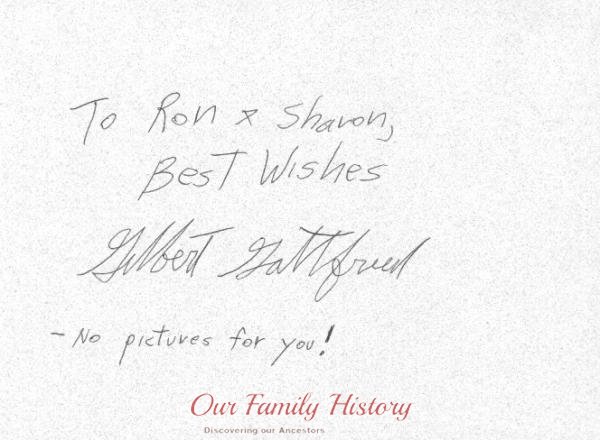 To Ron & Sharon,
Best Wishes
Gilbert Gottfried
- No pictures for you!
Our Family History
Discovering our Ancestors